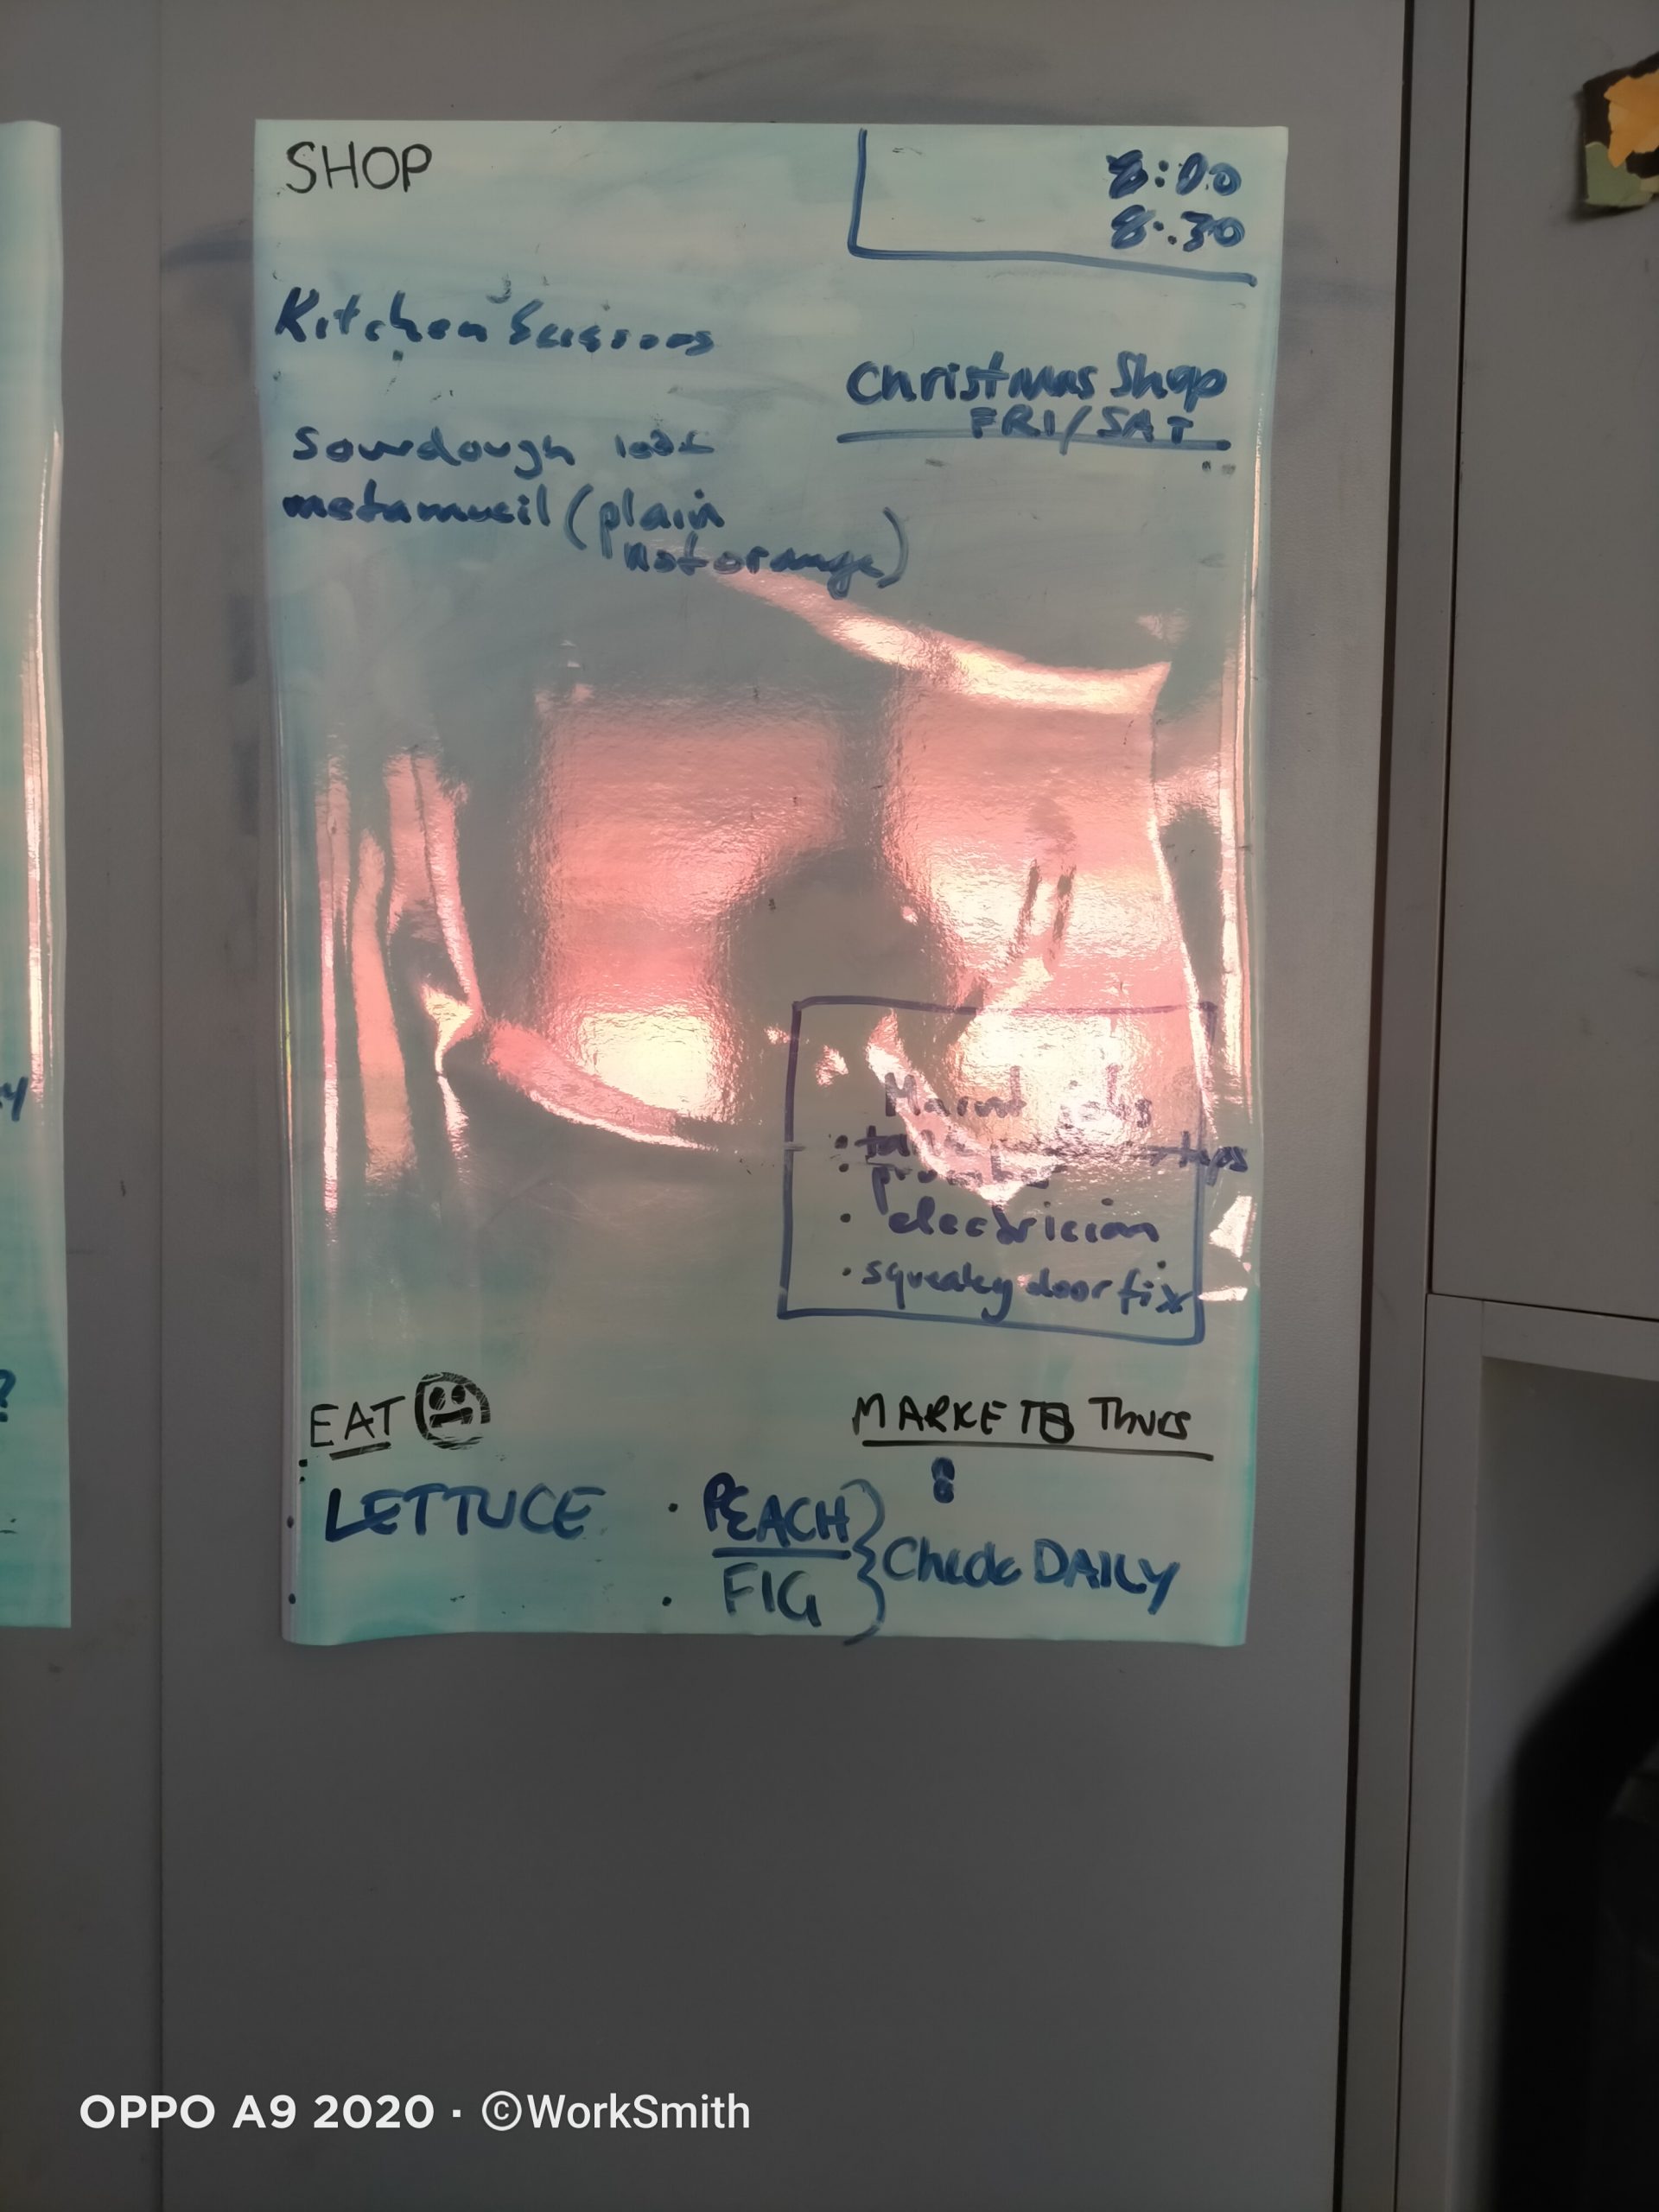 SHOP
8:00
8:30
Kitchen Scissors
Christmas Shop
FRI/SAT
Sourdough loaf
metamucil (plain
not orange)
Maint jobs
taps
electrician
squeaky door fix
EAT
MARKETS Thurs
LETTUCE
PEACH
FIG
Check DAILY
OPPO A9 2020 · ©WorkSmith